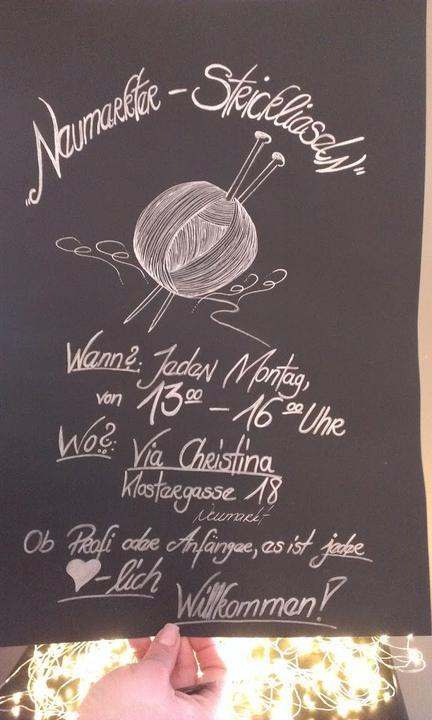 "Neumarkter - Strickliasln"
Wann?: Jeden Montag,
von 13⁰⁰ - 16⁰⁰ Uhr
Wo?: Via Christina
Klostergasse 18
Neumarkt
Ob Profi oder Anfänger, es ist jeder
♥-lich
Willkommen!